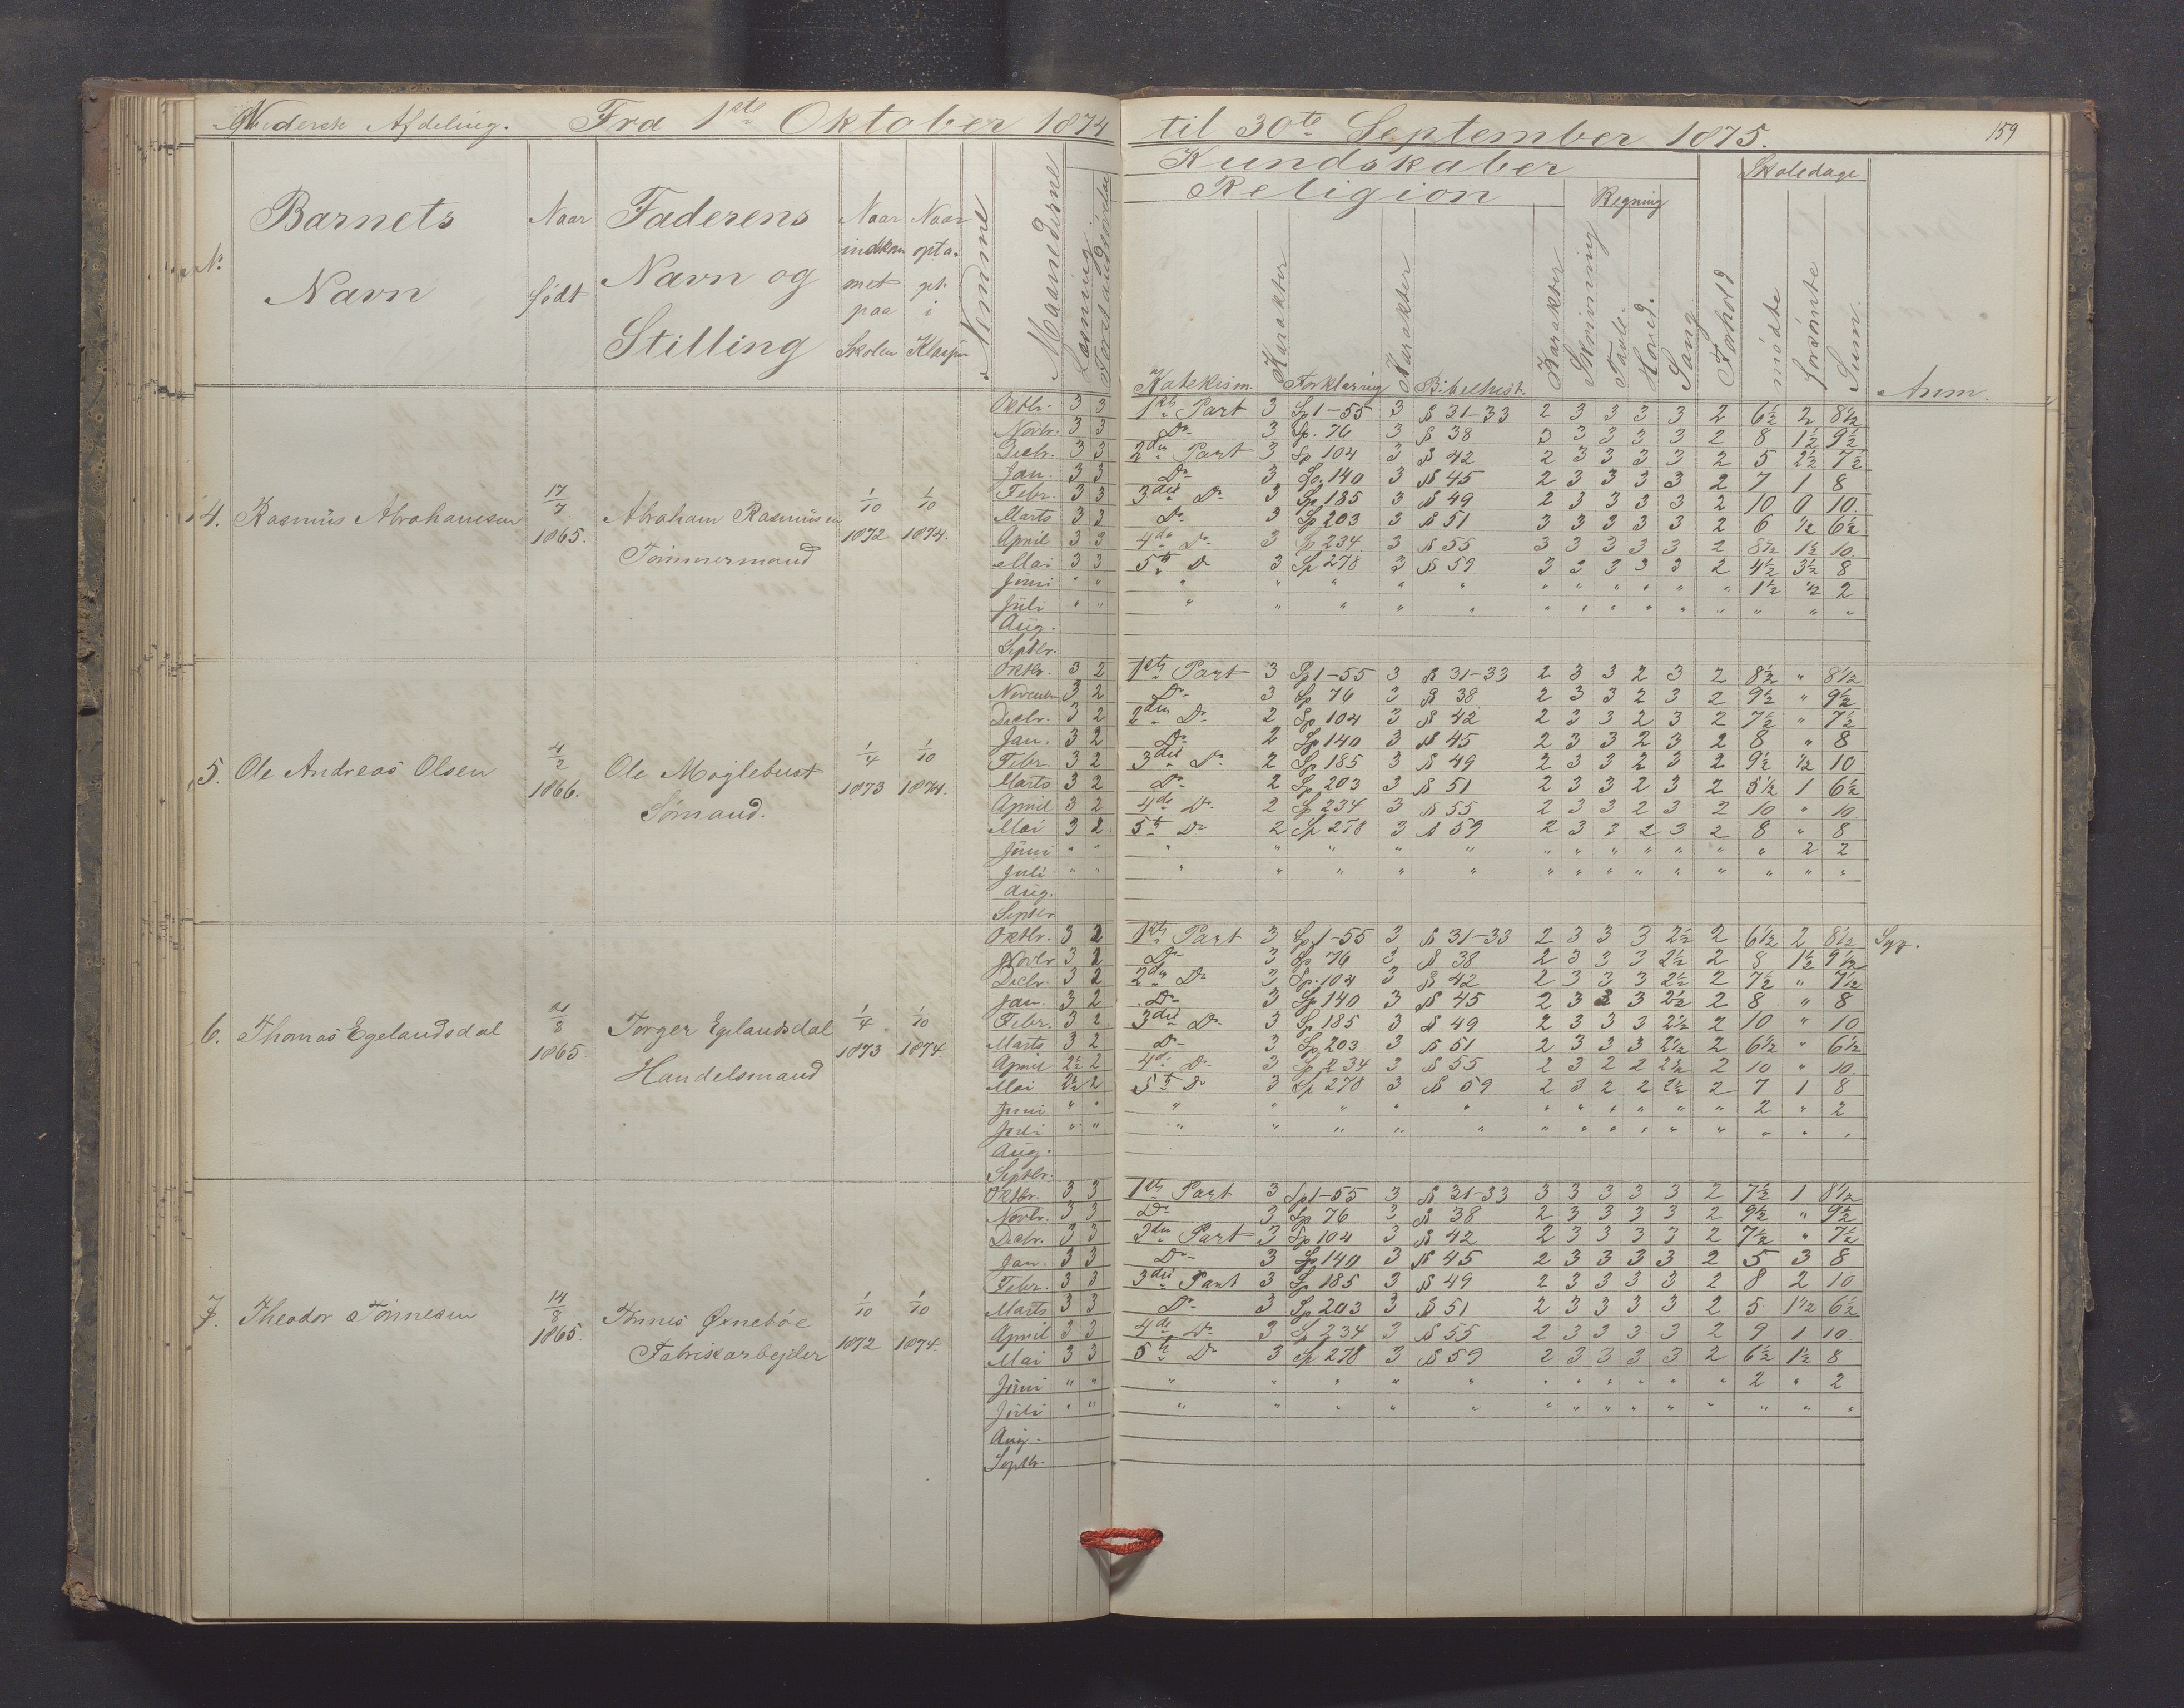 Nederste Afdeling. Fra 1ste Oktober 1874 til 30te September 1875. 159
No. Barnets Navn Naar født Faderens Navn og Stilling Naar indkommet paa Skolen Naar optaget i Klassen Nemme Maanederne Læsning Forstandsøvelse
Kundskaber Skoledage
Religion Regning
Katekism. Karakter Forklaring Karakter Bibelhist. Karakter Skrivning Tavle. Hoved. Sang Forhold mødte forsømte Sum. Anm.
4. Rasmus Abrahamsen 17/7 1865. Abraham Rasmussen Tømmermand 1/10 1872 1/10 1874.
Oktbr. 3 3 1ste Part 3 Sp 1-55 3 § 31-33 2 3 3 3 3 2 6½ 2 8½
Novbr. 3 3 Do 3 Sp. 76 3 § 38 3 3 3 3 3 2 8 1½ 9½
Decbr. 3 3 2den Part 3 Sp 104 3 § 42 2 3 3 3 3 2 5 2½ 7½
Jan. 3 3 Do 3 Sp. 140 3 § 45 2 3 3 3 3 2 7 1 8
Febr. 3 3 3die Do 3 Sp 185 3 § 49 2 3 3 3 3 2 10 0 10.
Marts 3 3 Do. 3 Sp 203 3 § 51 3 3 3 3 3 2 6 ½ 6½
April 3 3 4de Do. 3 Sp 234 3 § 55 3 3 3 3 3 2 8½ 1½ 10.
Mai 3 3 5te Do 3 Sp 278 3 § 59 3 3 3 3 3 2 4½ 3½ 8
Juni " " " " " " " " " " " " " 1½ ½ 2
Juli " " " " " " " " " " " " " " " "
Aug.
Septbr.
5. Ole Andreas Olsen 4/2 1866. Ole Møglebust Sømand. 1/4 1873 1/10 1874.
Oktbr. 3 2 1ste Part 3 Sp 1-55 3 § 31-33 2 3 3 2 3 2 8½ " 8½
November 3 2 Do 3 Sp 76 3 § 38 2 3 3 2 3 2 9½ " 9½
Decbr. 3 2 2den Do 2 Sp 104 3 § 42 2 3 3 2 3 2 7½ " 7½
Jan. 3 2 Do 2 Sp 140 3 § 45 2 3 3 2 3 2 8 " 8
Febr. 3 2 3die Do 2 Sp 185 3 § 49 2 3 3 2 3 2 9½ ½ 10
Marts 3 2 Do 2 Sp 203 3 § 51 2 3 3 2 3 2 5½ 1 6½
April 3 2 4de Do. 2 Sp 234 3 § 55 2 3 3 2 3 2 10 " 10.
Mai 3 2 5te Do 2 Sp 278 3 § 59 2 3 3 2 3 2 8 " 8
Juni " " " " " " " " " " " " " " 2 2
Juli " " " " " " " " " " " " " " " "
Aug.
Septbr
6. Thomas Egelandsdal 21/8 1865 Torger Egelandsdal Handelsmand 1/4 1873 1/10 1874.
Oktbr. 3 2 1ste Part 3 Sp. 1-55 3 § 31-33 2 3 3 3 2½ 2 6½ 2 8½
Novbr 3 2 Do 3 Sp 76 3 § 38 2 3 3 3 2½ 2 8 1½ 9½
Decbr. 3 2 2den Do 3 Sp. 104 3 § 42 2 3 3 3 2½ 2 7½ " 7½
Jan. 3 2 Do 3 Sp 140 3 § 45 2 3 3 3 2½ 2 8 " 8
Febr. 3 2 3die Do 3 Sp 185 3 § 49 2 3 3 3 2½ 2 10 " 10
Marts 3 2 Do 3 Sp 203 3 § 51 2 3 3 3 2½ 2 6½ " 6½
April 2½ 2 4de Do 3 Sp 234 3 § 55 2 3 2 2 2½ 2 10 " 10.
Mai 2½ 2 5te Do 3 Sp 278 3 § 59 2 3 2 2 2½ 2 7 1 8
Juni " " " " " " " " " " " " " 2 " 2
Juli " " " " " " " " " " " " " " " "
Aug.
Septbr.
7. Theodor Tønnesen 14/8 1865. Tønnes Øxnebøe Fabrikarbejder 1/10 1872 1/10 1874.
Oktbr. 3 3 1ste Part 3 Sp 1-55 3 § 31-33 3 3 3 3 3 2 7½ 1 8½
Novbr. 3 3 Do 3 Sp 76 3 § 38 2 3 3 3 3 2 9½ " 9½
Decbr. 3 3 2den Part 3 Sp 104 3 § 42 2 3 3 3 3 2 7½ " 7½
Jan. 3 3 Do 3 Sp 140 3 § 45 2 3 3 3 3 2 5 3 8
Febr. 3 3 3die Part 3 Sp 185 3 § 49 2 3 3 3 3 2 8 2 10
Marts 3 3 Do 3 Sp 203 3 § 51 2 3 3 3 3 2 5 1½ 6½
April 3 3 4de Do 3 Sp 234 3 § 55 2 3 3 3 3 2 9 1 10.
Mai 3 3 5te Do 3 Sp 278 3 § 59 2 3 3 3 3 2 6½ 1½ 8
Juni " " " " " " " " " " " " " 2 " 2
Juli " " " " " " " " " " " " " " " "
Aug.
Septbr.